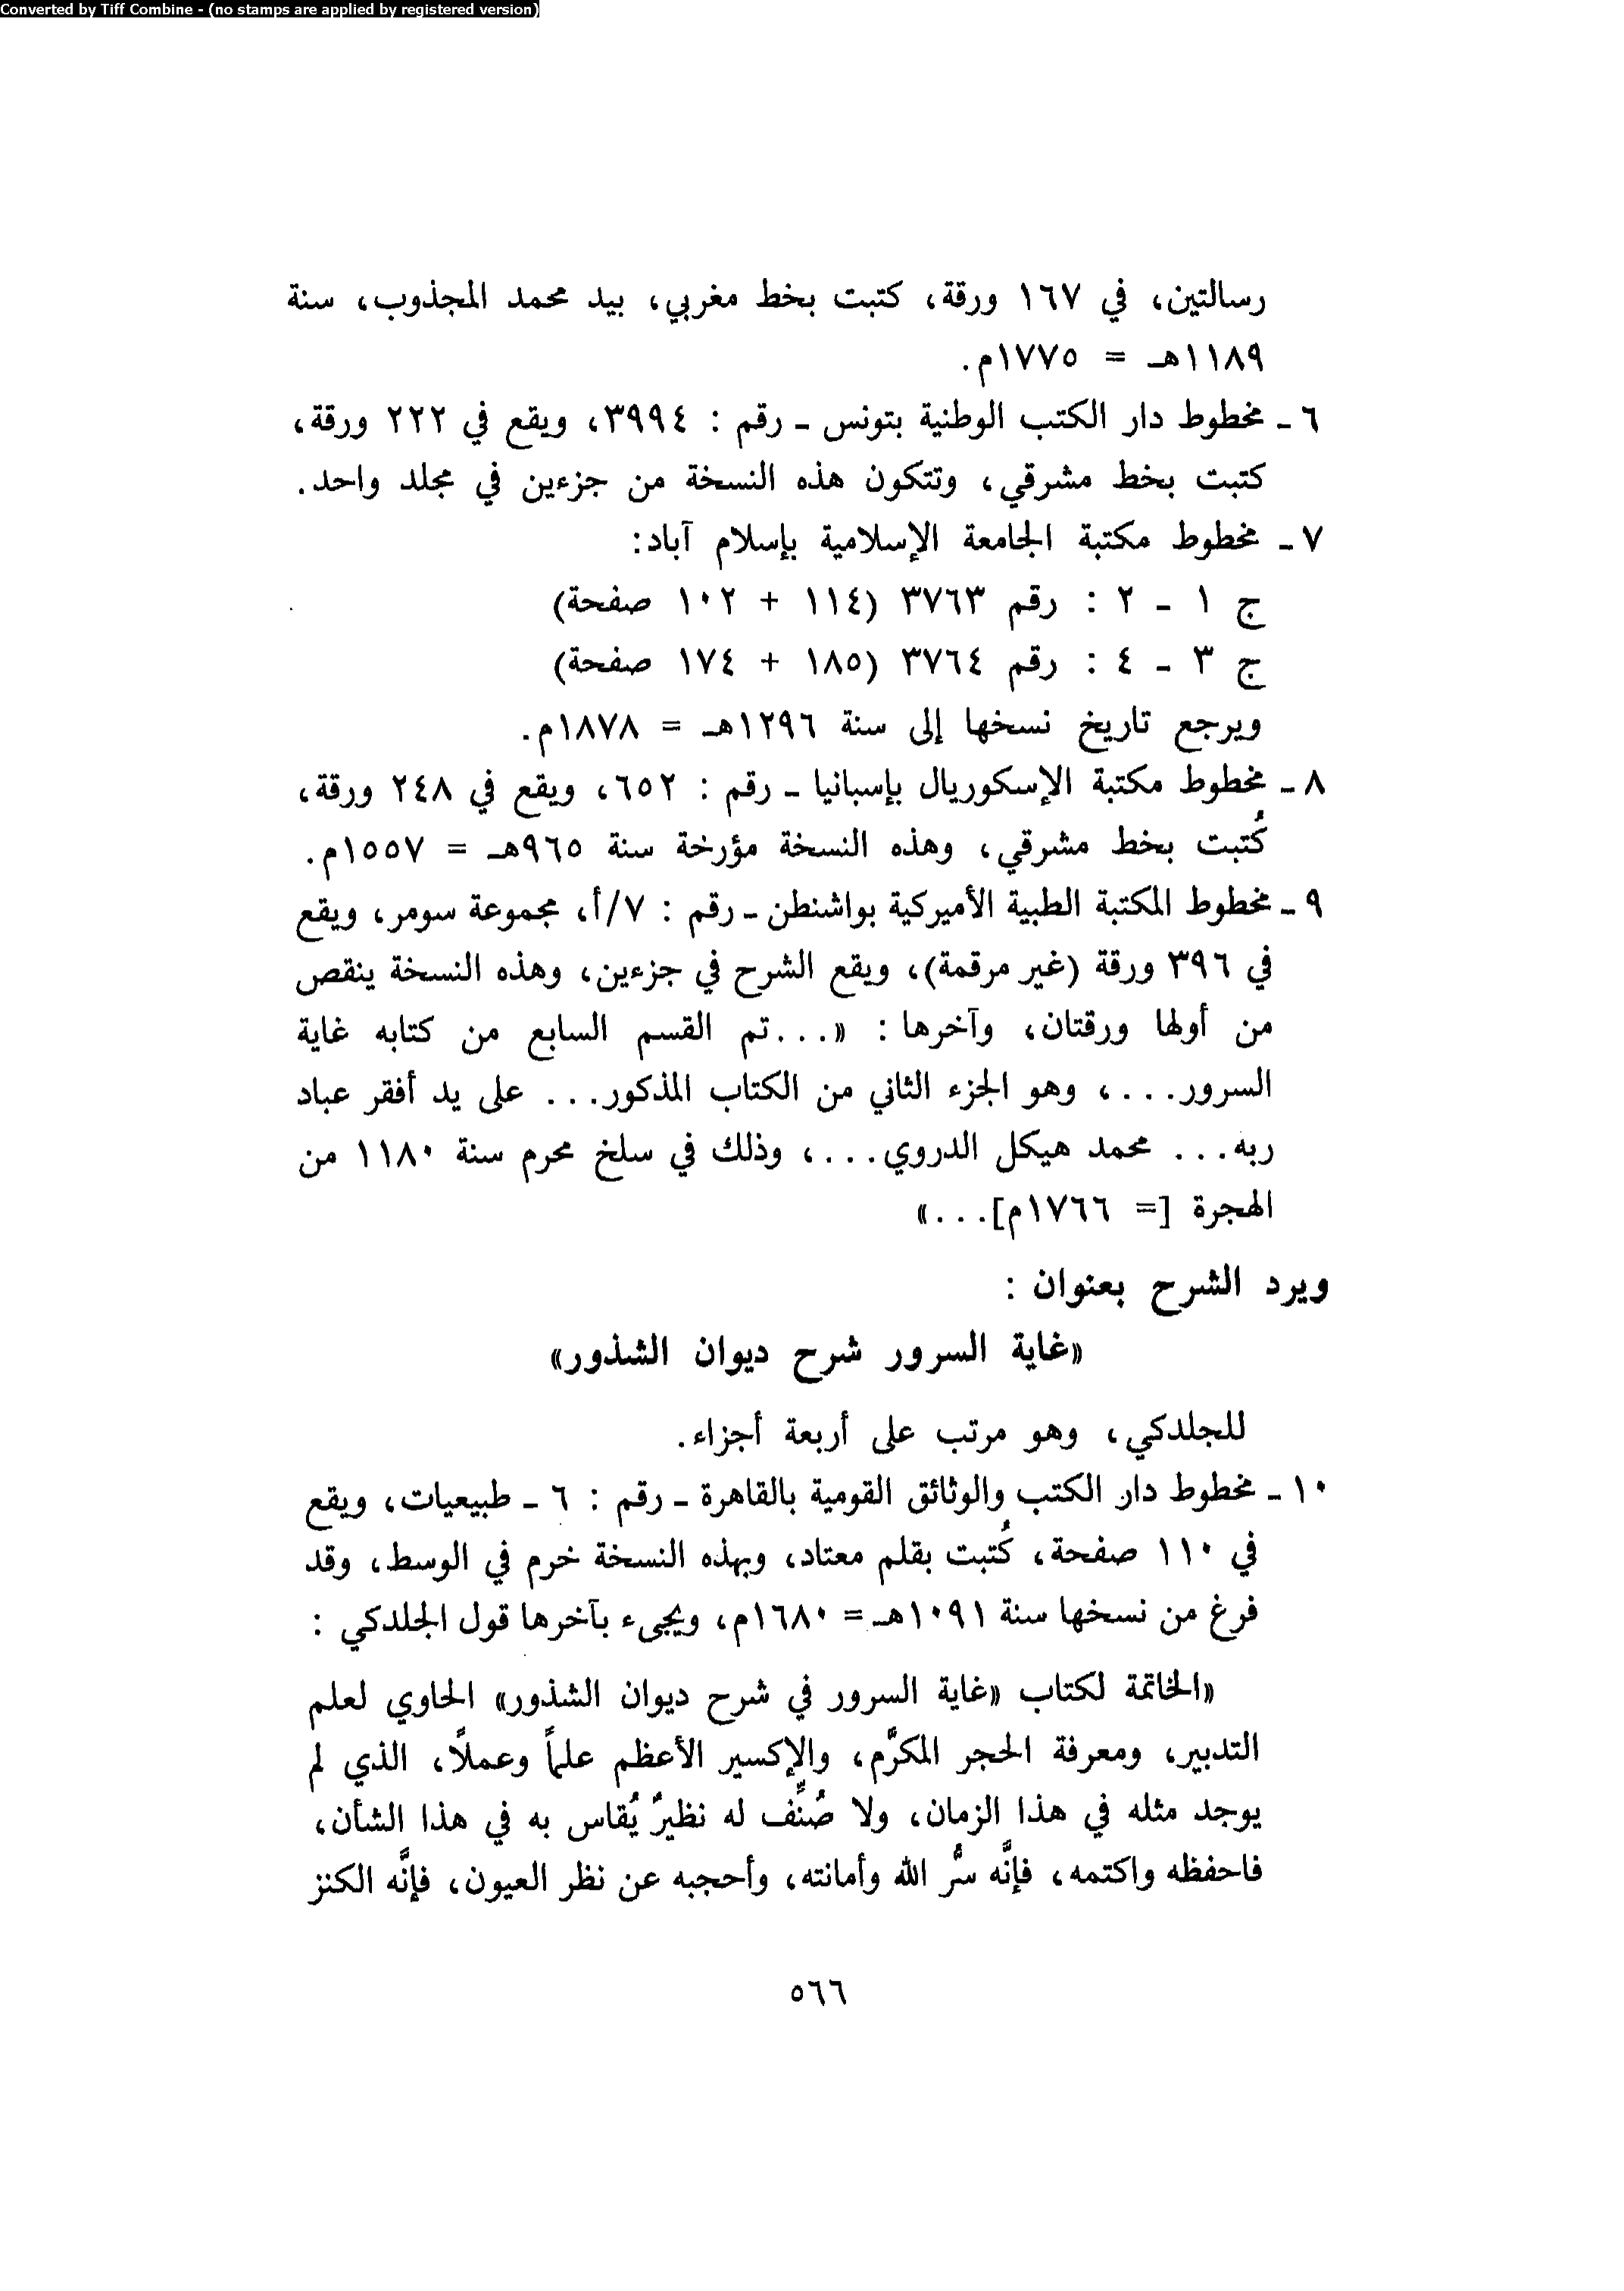 Converted by Tiff Combine - (no stamps are applied by registered version)
رسالتين، في ١٦٧ ورقة، كتبت بخط مغربي، بيد محمد المجذوب، سنة
١١٨٩هـ = ١٧٧٥م.
٦ - مخطوط دار الكتب الوطنية بتونس - رقم : ٣٩٩٤، ويقع في ٢٢٢ ورقة،
كتبت بخط مشرقي، وتتكون هذه النسخة من جزءين في مجلد واحد.
٧ - مخطوط مكتبة الجامعة الإسلامية بإسلام آباد:
ج ١ - ٢ : رقم ٣٧٦٣ (١١٤ + ١٠٢ صفحة)
ج ٣ - ٤ : رقم ٣٧٦٤ (١٨٥ + ١٧٤ صفحة)
ويرجع تاريخ نسخها إلى سنة ١٢٩٦هـ = ١٨٧٨م.
٨ - مخطوط مكتبة الإسكوريال بإسبانيا - رقم : ٦٥٢، ويقع في ٢٤٨ ورقة،
كُتبت بخط مشرقي، وهذه النسخة مؤرخة سنة ٩٦٥هـ = ١٥٥٧م.
٩ - مخطوط المكتبة الطبية الأميركية بواشنطن - رقم : ٧/أ، مجموعة سومر، ويقع
في ٣٩٦ ورقة (غير مرقمة)، ويقع الشرح في جزءين، وهذه النسخة ينقص
من أولها ورقتان، وآخرها : «...تم القسم السابع من كتابه غاية
السرور...، وهو الجزء الثاني من الكتاب المذكور... على يد أفقر عباد
ربه... محمد هيكل الدروي...، وذلك في سلخ محرم سنة ١١٨٠ من
الهجرة [= ١٧٦٦م]...»
ويرد الشرح بعنوان :
«غاية السرور شرح ديوان الشذور»
للجلدكي، وهو مرتب على أربعة أجزاء.
١٠ - مخطوط دار الكتب والوثائق القومية بالقاهرة - رقم : ٦ - طبيعيات، ويقع
في ١١٠ صفحة، كُتبت بقلم معتاد، وبهذه النسخة خرم في الوسط، وقد
فرغ من نسخها سنة ١٠٩١هـ = ١٦٨٠م، ويجىء بآخرها قول الجلدكي :
«الخاتمة لكتاب «غاية السرور في شرح ديوان الشذور» الحاوي لعلم
التدبير، ومعرفة الحجر المكرَّم، والإكسير الأعظم علماً وعملاً، الذي لم
يوجد مثله في هذا الزمان، ولا صُنِّف له نظيرٌ يُقاس به في هذا الشأن،
فاحفظه واكتمه، فإنَّه سرُّ الله وأمانته، وأحجبه عن نظر العيون، فإنَّه الكنز
٥٦٦